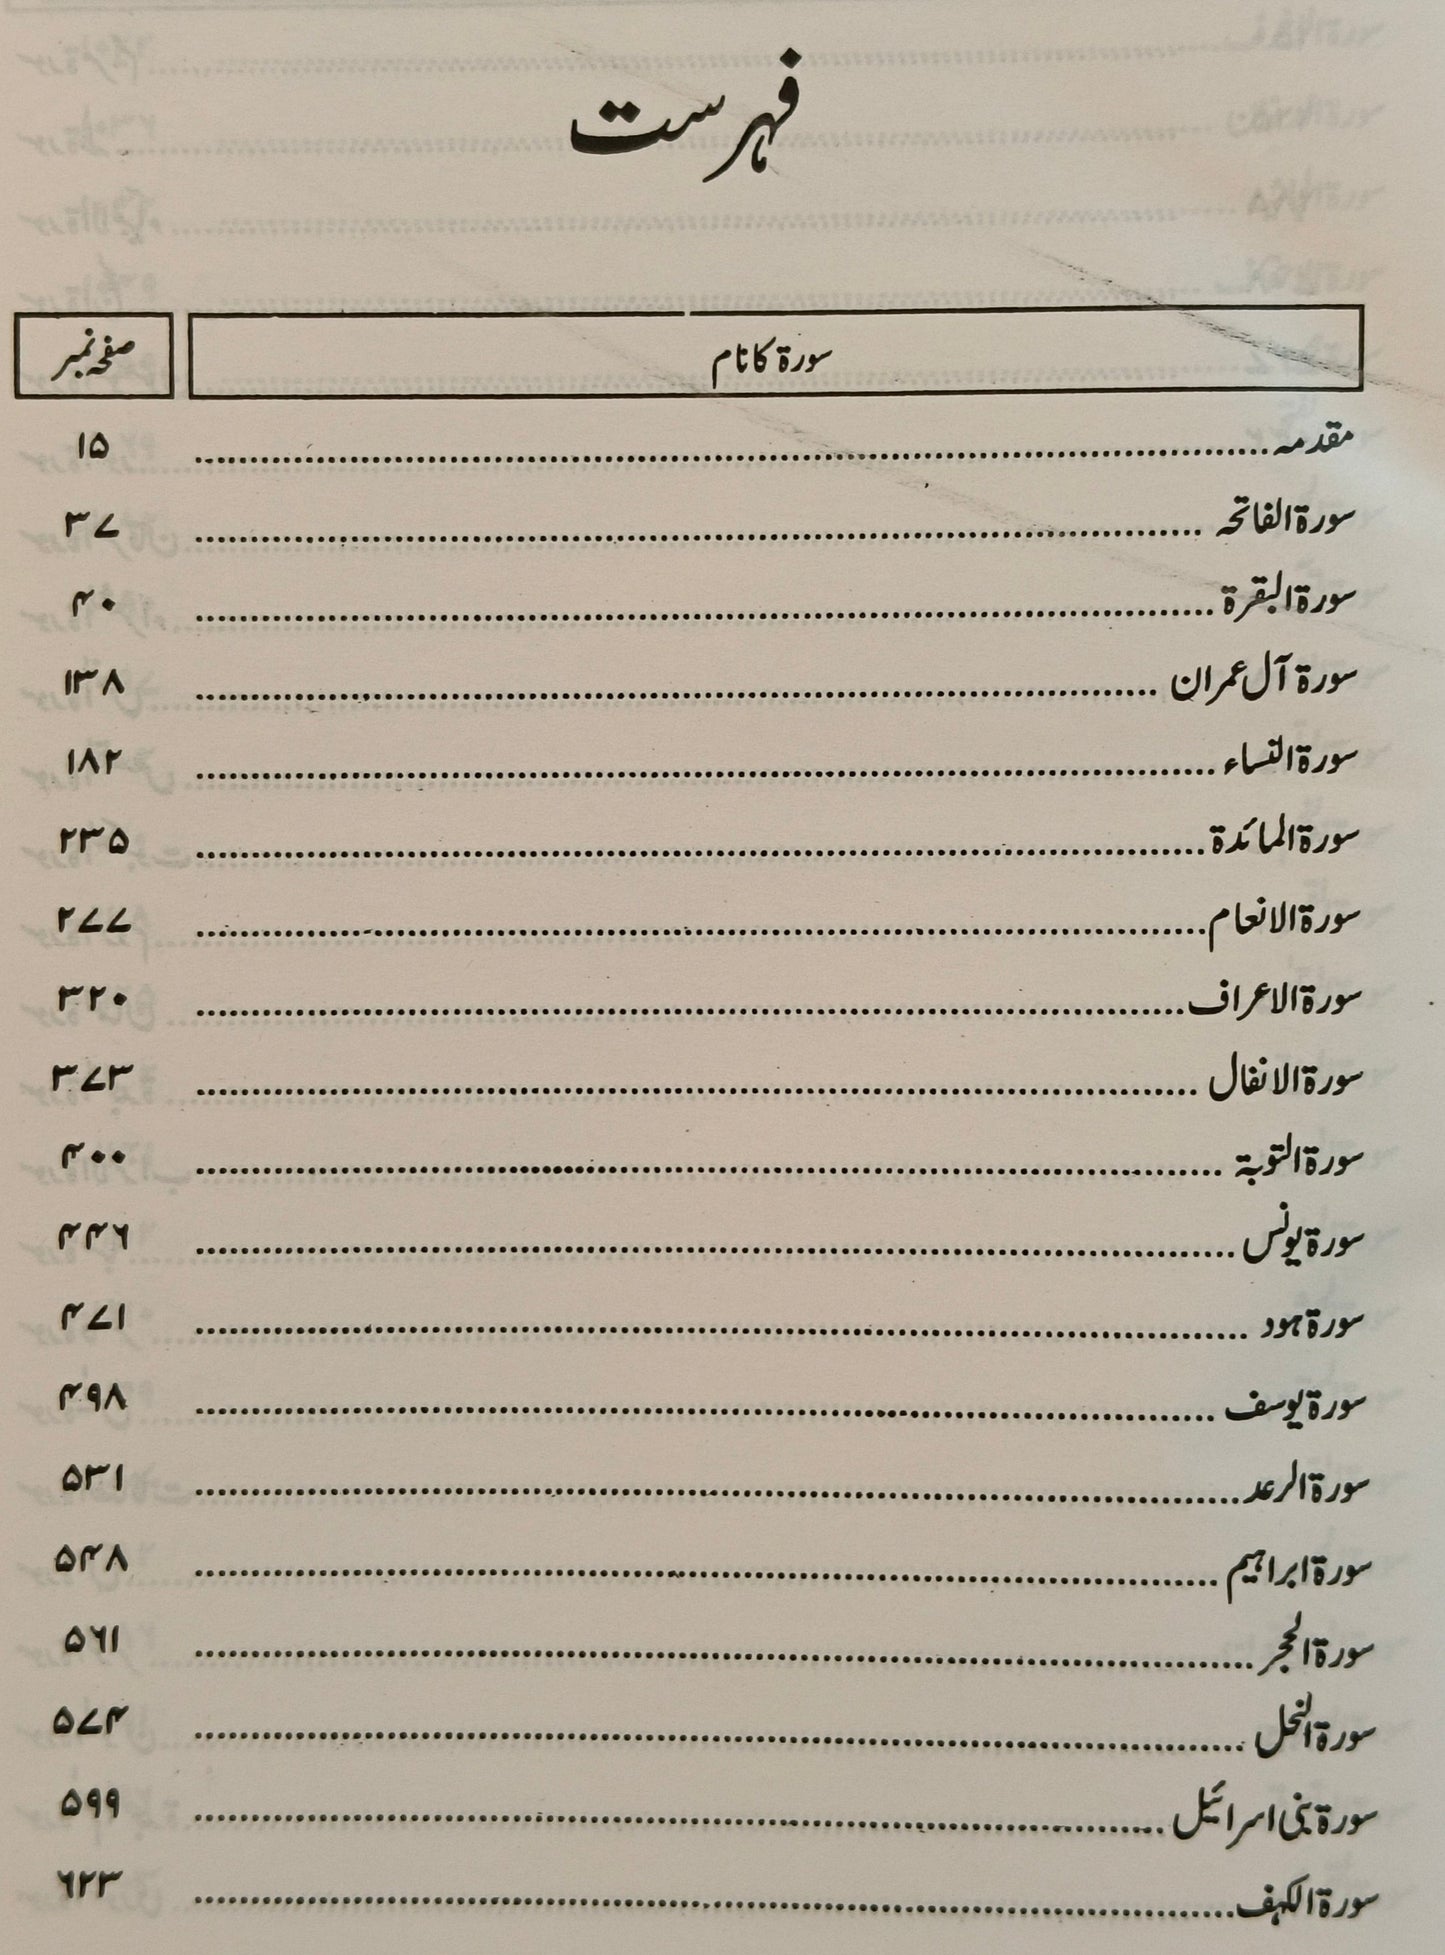 فہرست
سورۃ کا نام صفحہ نمبر
مقدمہ ........ ۱۵
سورۃ الفاتحہ ........ ۳۷
سورۃ البقرۃ ........ ۴۰
سورۃ آل عمران ........ ۱۳۸
سورۃ النساء ........ ۱۸۲
سورۃ المائدۃ ........ ۲۳۵
سورۃ الانعام ........ ۲۷۷
سورۃ الاعراف ........ ۳۲۰
سورۃ الانفال ........ ۳۷۳
سورۃ التوبۃ ........ ۴۰۰
سورۃ یونس ........ ۴۴۶
سورۃ ہود ........ ۴۷۱
سورۃ یوسف ........ ۴۹۸
سورۃ الرعد ........ ۵۳۱
سورۃ ابراہیم ........ ۵۴۸
سورۃ الحجر ........ ۵۶۱
سورۃ النحل ........ ۵۷۴
سورۃ بنی اسرائیل ........ ۵۹۹
سورۃ الکہف ........ ۶۲۳